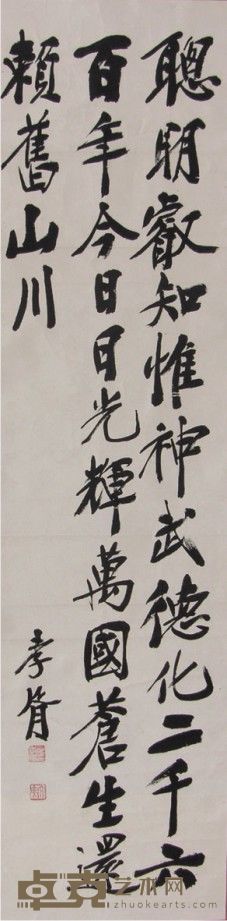 聰明叡知惟神武德化二千六
百年今日日光輝萬國蒼生還
賴舊山川
孝胥
卓克艺术网
zhuokearts.com